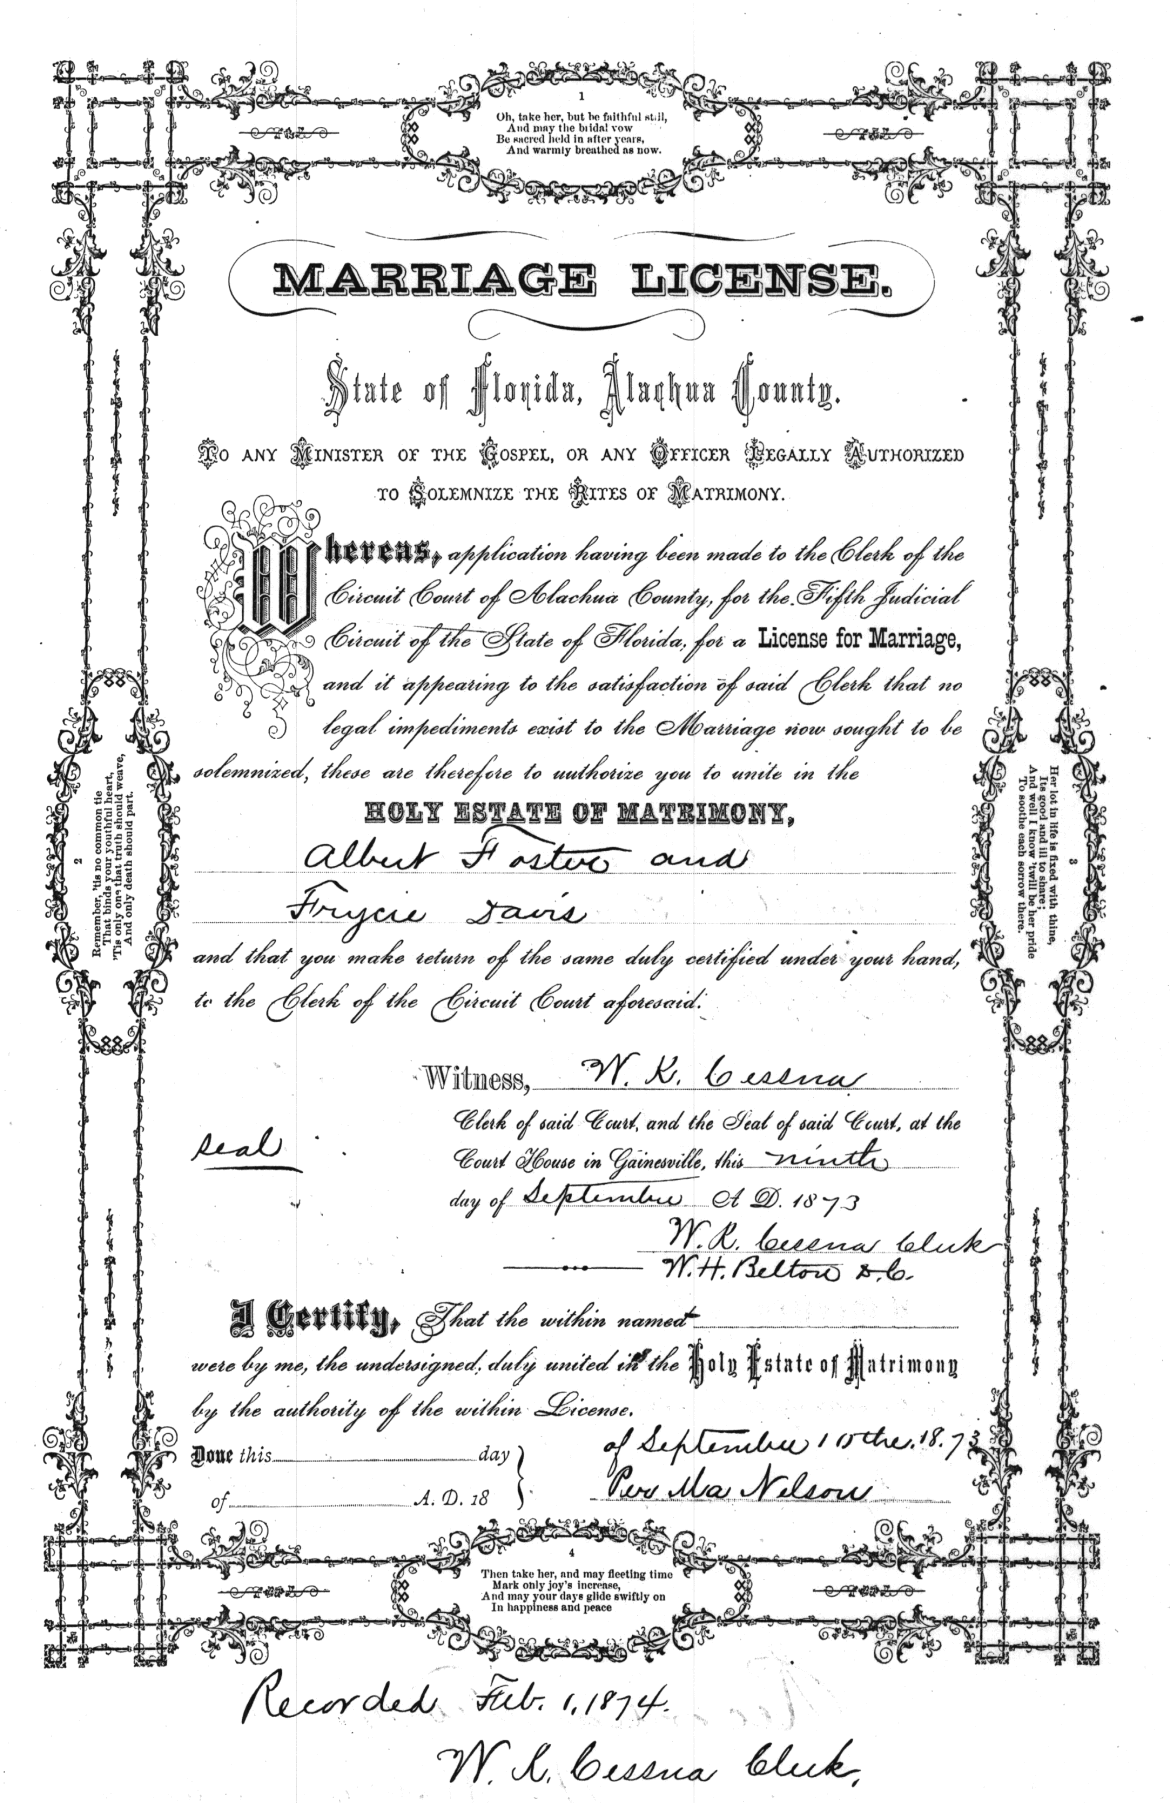 1
Oh, take her, but be faithful still,
And may the bridal vow
Be sacred held in after years,
And warmly breathed as now.
MARRIAGE LICENSE.
State of Florida, Alachua County.
TO ANY MINISTER OF THE GOSPEL, OR ANY OFFICER LEGALLY AUTHORIZED
TO SOLEMNIZE THE RITES OF MATRIMONY.
Whereas, application having been made to the Clerk of the
Circuit Court of Alachua County, for the Fifth Judicial
Circuit of the State of Florida, for a License for Marriage,
and it appearing to the satisfaction of said Clerk that no
legal impediments exist to the Marriage now sought to be
solemnized, these are therefore to authorize you to unite in the
HOLY ESTATE OF MATRIMONY,
Albert Foster and
Frycie Davis
and that you make return of the same duly certified under your hand,
to the Clerk of the Circuit Court aforesaid.
2
Remember, 'tis no common tie
That binds your youthful heart,
'Tis only one that truth should weave,
And only death should part.
3
Her lot in life is fixed with thine,
Its good and ill to share;
And well I know 'twill be her pride
To soothe each sorrow there.
Witness, W. K. Cessna
Clerk of said Court, and the Seal of said Court, at the
seal
Court House in Gainesville, this ninth
day of September A. D. 1873
W. K. Cessna Clerk
W. H. Belton D.C.
I Certify, That the within named
were by me, the undersigned, duly united in the Holy Estate of Matrimony
by the authority of the within License.
Done this day
of A. D. 18
of September 18.73
Nelson
4
Then take her, and may fleeting time
Mark only joy's increase,
And may your days glide swiftly on
In happiness and peace
Recorded Feb. 1, 1874.
W. K. Cessna Clerk,